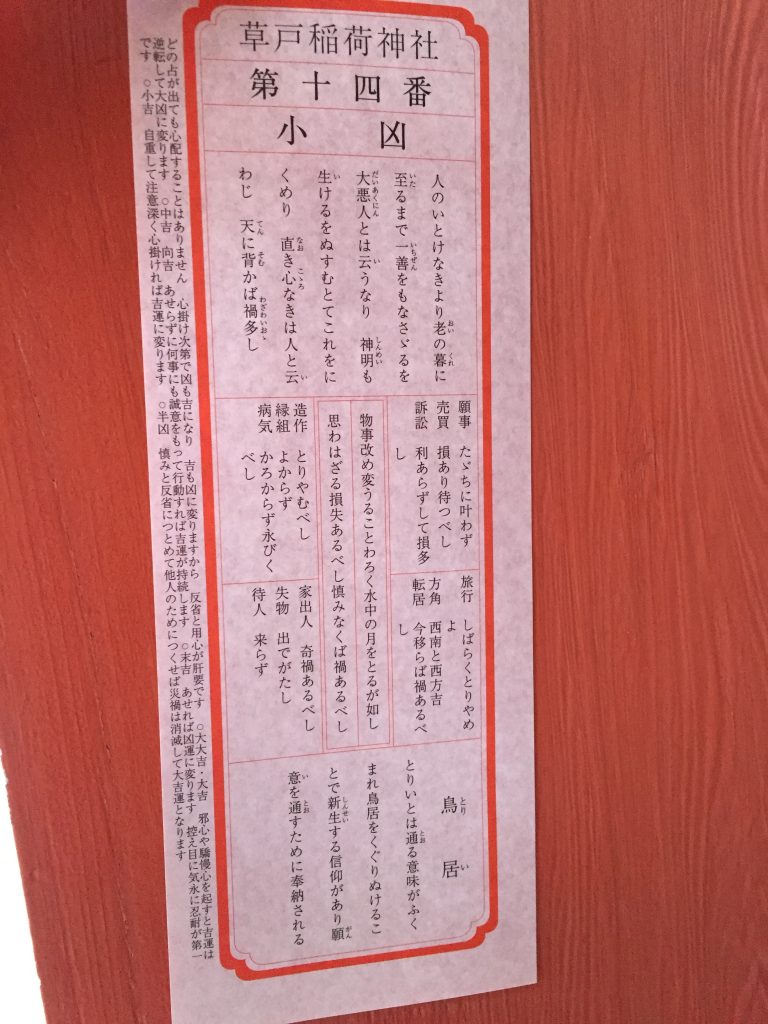 草戸稲荷神社
第十四番
小凶
人のいとけなきより老の暮に
至るまで一善をもなさゞるを
大悪人とは云うなり　神明も
生けるをぬすむとてこれをに
くめり　直き心なきは人と云
わじ　天に背かば禍多し
願事　たゞちに叶わず
売買　損あり待つべし
訴訟　利あらずして損多
し
旅行　しばらくとりやめ
よ
方角　西南と西方吉
転居　今移らば禍あるべ
し
物事改め変うることわろく水中の月をとるが如し
思わはざる損失あるべし慎みなくば禍あるべし
造作　とりやむべし
縁組　よからず
病気　かろからず永びく
べし
家出人　奇禍あるべし
失物　出でがたし
待人　来らず
鳥居
とりいとは通る意味がふく
まれ鳥居をくぐりぬけるこ
とで新生する信仰があり願
意を通すために奉納される
どの占が出ても心配することはありません　心掛け次第で凶も吉になり　吉も凶に変りますから　反省と用心が肝要です　○大大吉・大吉　邪心や驕慢心を起すと吉運は
逆転して大凶に変ります　○中吉　向吉　あせらずに何事にも誠意をもって行動すれば吉運が持続します　○末吉　あせれば凶運に変ります　控え目に気永に忍耐が第一
です　○小吉　自重して注意深く心掛ければ吉運に変ります　○半凶　慎みと反省につとめて他人のためにつくせば災禍は消滅して大吉運となります